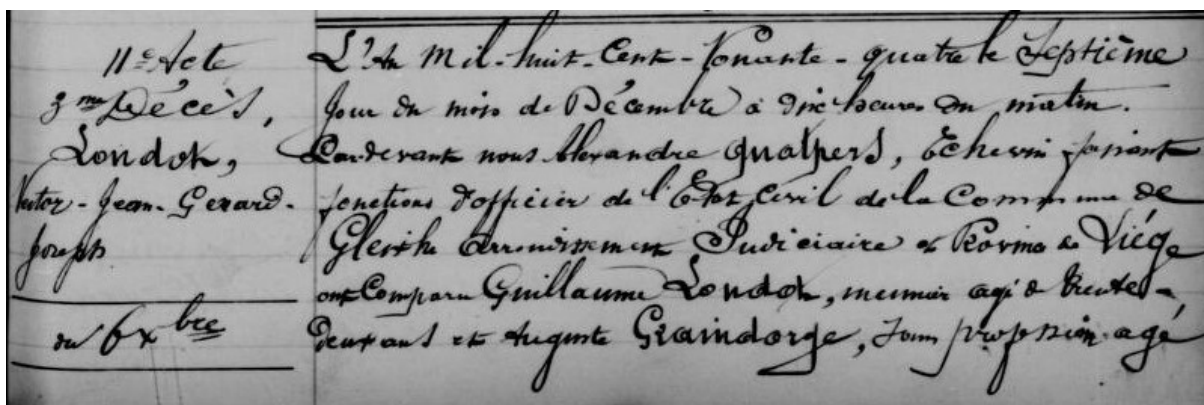 11e Acte
3me Décès,
Londot,
Victor-Jean-Gerard-
Joseph
du 6 xbre
L'An Mil-huit-Cent-Nonante-quatre le Septième
Jour du mois de Décembre à dix heures du matin.
Pardevant nous Alexandre Qualpers, Echevin faisant
fonctions d'officier de l'Etat Civil de la Commune de
Glexhe Arrondissement Judiciaire et Province de Liége
ont Comparu Guillaume Londot, meunier agé de trente-
deux ans et Auguste Graindorge, Sans profession agé